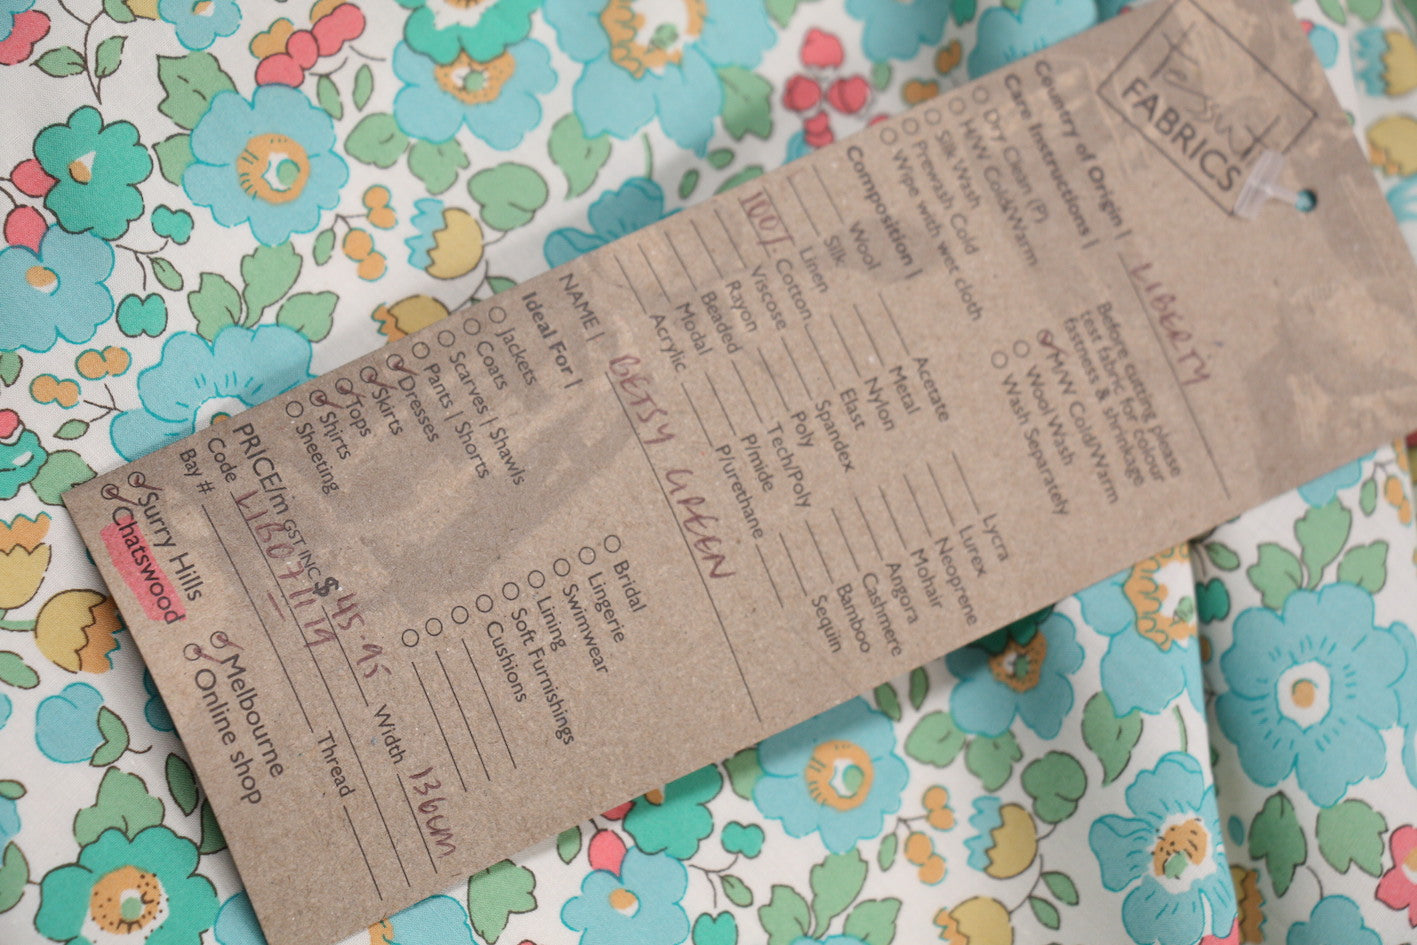 Tessuti
FABRICS
Country of Origin | LIBERTY
Care Instructions |
Dry Clean (P)
H/W Cold/Warm
Silk Wash
Prewash Cold
Wipe with wet cloth
Before cutting please
test fabric for colour
fastness & shrinkage
M/W Cold/Warm
Wool Wash
Wash Separately
Composition |
Wool
Silk
Linen
100% Cotton
Viscose
Rayon
Beaded
Modal
Acrylic
Acetate
Metal
Nylon
Elast
Spandex
Poly
Tech/Poly
P/mide
P/urethane
Lycra
Lurex
Neoprene
Mohair
Angora
Cashmere
Bamboo
Sequin
NAME | BETSY GREEN
Ideal For |
Jackets
Coats
Scarves | Shawls
Pants | Shorts
Dresses
Skirts
Tops
Shirts
Sheeting
Bridal
Lingerie
Swimwear
Lining
Soft Furnishings
Cushions
PRICE/m GST INC $ 45.95 Width 136cm
Code
Bay # Thread
Surry Hills
Chatswood
Melbourne
Online shop